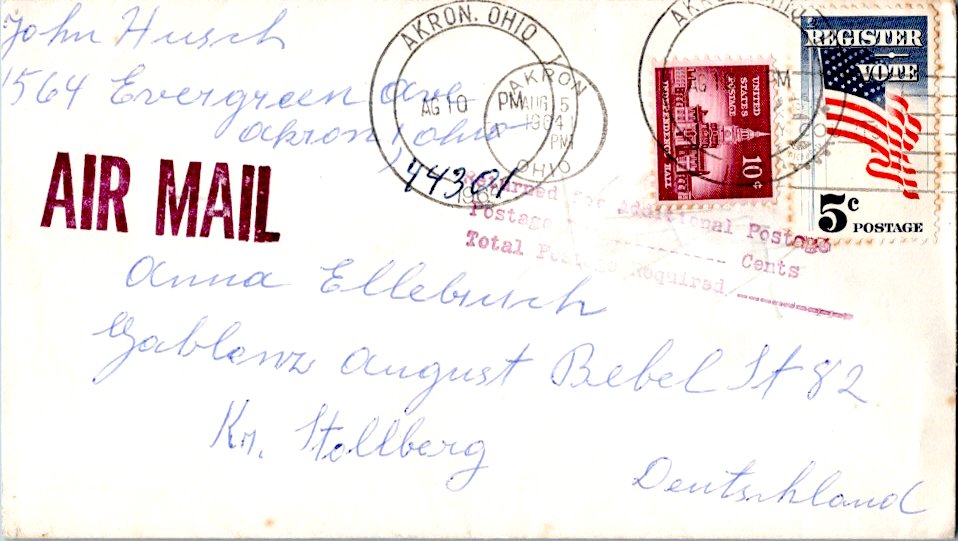 John Husch
1564 Evergreen Ave
Akron, Ohio
44301
AIR MAIL
AKRON. OHIO
AG 10 PM
196
AKRON
AUG 5
1964
PM
OHIO
AKRON, OHIO
AG PM
UNITED
STATES
POSTAGE
INDEPENDENCE HALL
10¢
REGISTER
VOTE
5c POSTAGE
Returned for Additional Postage
Postage Cents
Total Postage Required
Anna Ellebusch
Gablenz August Bebel St 82
Kr. Stollberg
Deutschland